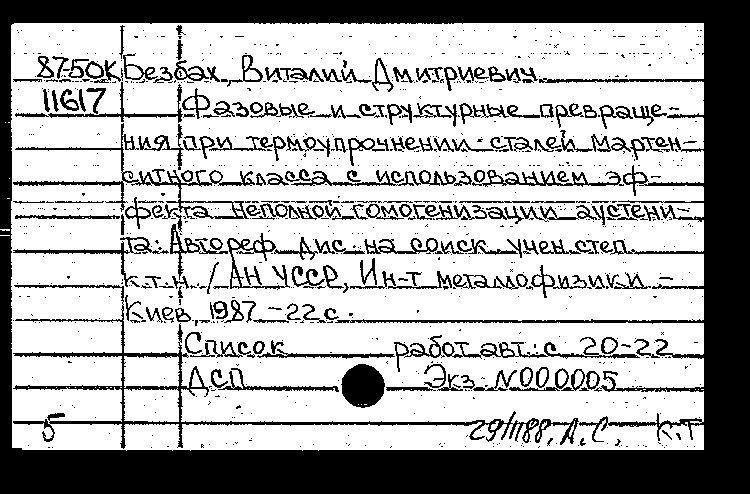 87-50К Безбах, Виталий Дмитриевич
11617 Фазовые и структурные превраще-
ния при термоупрочнении сталей мартен-
ситного класса с использованием эф-
фекта неполной гомогенизации аустени-
та: Автореф. дис. на соиск. учен. степ.
к.т.н. / АН УССР, Ин-т металлофизики -
Киев, 1987. - 22 с.
Список работ авт.: с. 20-22
ДСП Экз. N000005
5 29/II88. А.С. К.Т